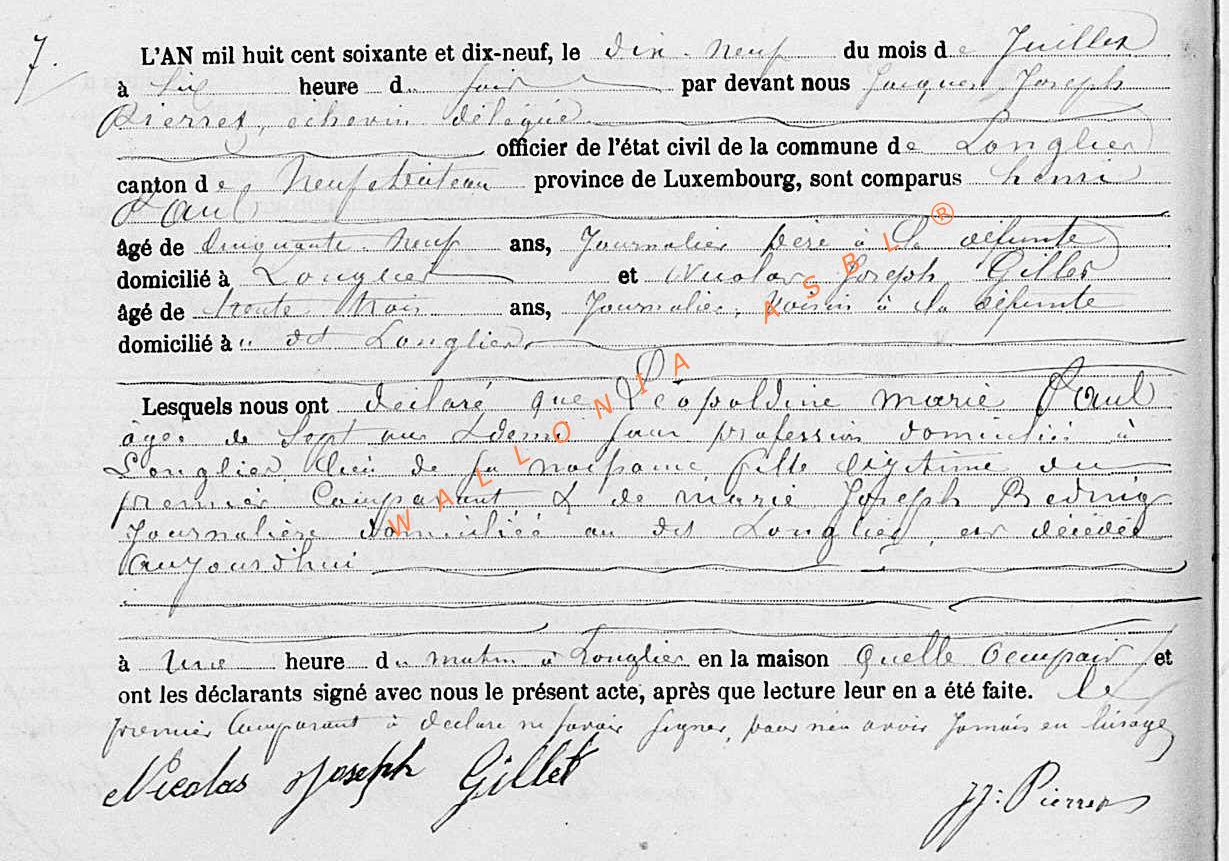 7.
L'AN mil huit cent soixante et dix-neuf, le dix-neuf du mois de Juillet
à six heure du soir par devant nous Jacques Joseph
Pierret, echevin délégué
officier de l'état civil de la commune de Longlier
canton de Neufchâteau province de Luxembourg, sont comparus henri
Paul
âgé de Cinquante Neuf ans, Journalier père à la défunte
domicilié à Longlier et Nicolas Joseph Gillet
âgé de trente trois ans, Journalier, Voisin à la défunte
domicilié à dit Longlier
Lesquels nous ont déclaré que Léopoldine marie Paul
âgée de Sept ans & demi sans profession domiciliée à
Longlier, lieu de sa naissance fille légitime du
premier Comparant & de marie Joseph
Journalière domiciliée au dit Longlier, est décédée
aujourd'hui
à Une heure du matin à Longlier en la maison quelle occupait et
ont les déclarants signé avec nous le présent acte, après que lecture leur en a été faite. Le
premier Comparant à declaré ne savoir signer, pour n'en avoir jamais eu l'usage
Nicolas Joseph Gillet
JJ: Pierret
WALLONIA ASBL ®